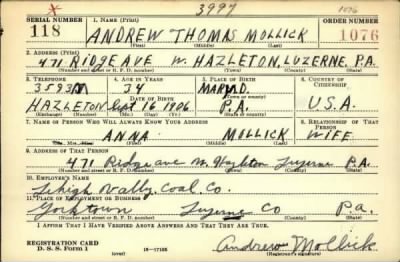 3997
1076
SERIAL NUMBER 1. NAME (Print) ORDER NUMBER
118 ANDREW THOMAS MOLLICK 1076
(First) (Middle) (Last)
2. ADDRESS (Print)
471 RIDGE AVE W. HAZLETON, LUZERNE, P.A.
(Number and street or R. F. D. number) (Town) (County) (State)
3. TELEPHONE 4. AGE IN YEARS 5. PLACE OF BIRTH 6. COUNTRY OF CITIZENSHIP
3593 34 U.S.A.
DATE OF BIRTH (Town or county)
HAZLETON 16 1906 P.A.
(Exchange) (Number) (Mo.) (Day) (Yr.) (State or country)
7. NAME OF PERSON WHO WILL ALWAYS KNOW YOUR ADDRESS 8. RELATIONSHIP OF THAT PERSON
ANNA MOLLICK WIFE
(Mr., Mrs., Miss) (First) (Middle) (Last)
9. ADDRESS OF THAT PERSON
471 Ridge ave W. Hazleton Luzerne P.A.
(Number and street or R. F. D. number) (Town) (County) (State)
10. EMPLOYER'S NAME
Lehigh Vally. Coal. Co.
11. PLACE OF EMPLOYMENT OR BUSINESS
Yorktown Luzerne Co P.a.
(Number and street or R. F. D. number) (Town) (County) (State)
I AFFIRM THAT I HAVE VERIFIED ABOVE ANSWERS AND THAT THEY ARE TRUE.
REGISTRATION CARD
D. S. S. Form 1 (over) 16—17105 Andrew Mollick
(Registrant's signature)